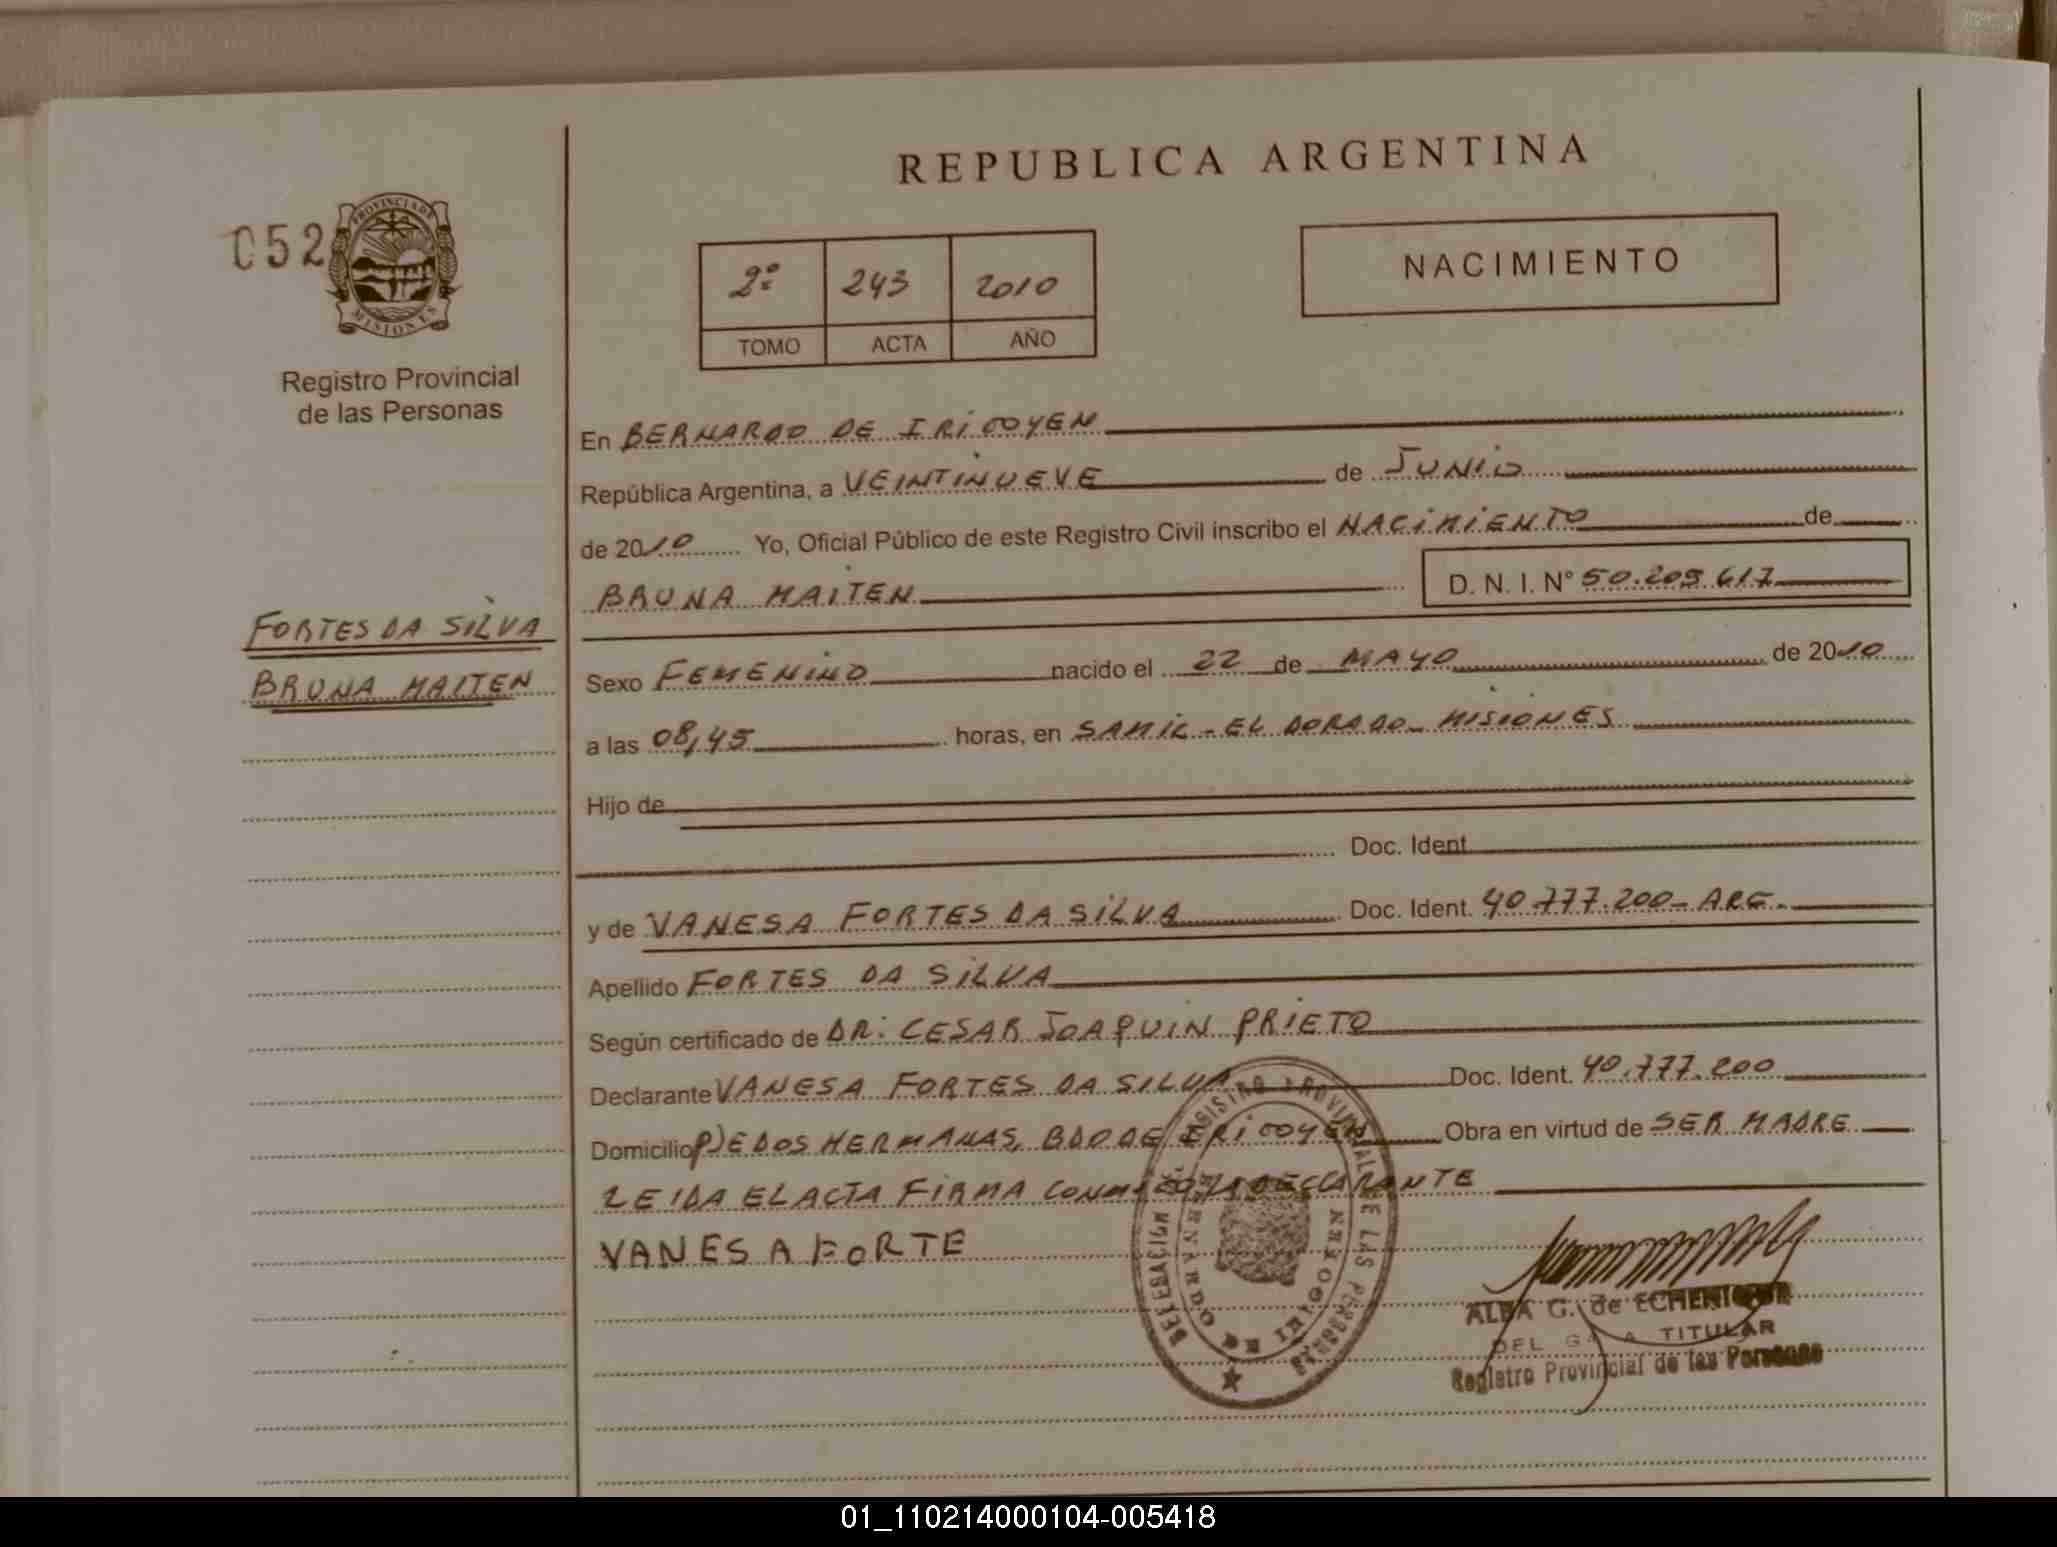 REPUBLICA ARGENTINA
052
PROVINCIA DE
MISIONES
Registro Provincial
de las Personas
2º 243 2010
TOMO ACTA AÑO
NACIMIENTO
En BERNARDO DE IRIGOYEN
República Argentina, a VEINTINUEVE de JUNIO
de 2010 Yo, Oficial Público de este Registro Civil inscribo el NACIMIENTO de
BRUNA MAITEN D. N. I. N° 50.209.617
FORTES DA SILVA
BRUNA MAITEN
Sexo FEMENINO nacido el 22 de MAYO de 2010
a las 08,45 horas, en SAMIC - EL DORADO - MISIONES
Hijo de
Doc. Ident.
y de VANESA FORTES DA SILVA Doc. Ident. 40.777.200 - ARG.
Apellido FORTES DA SILVA
Según certificado de DR: CESAR JOAQUIN PRIETO
Declarante VANESA FORTES DA SILVA Doc. Ident. 40.777.200
Domicilio P) E DOS HERMANAS, BDO DE IRIGOYEN Obra en virtud de SER MADRE
LEIDA EL ACTA FIRMA CONMIGO LA DECLARANTE
VANESA FORTE
DELEGACION REGISTRO PROVINCIAL DE LAS PERSONAS
BERNARDO DE IRIGOYEN
ALBA G. de ECHENIQUE
TITULAR
Registro Provincial de las Personas
01_110214000104-005418